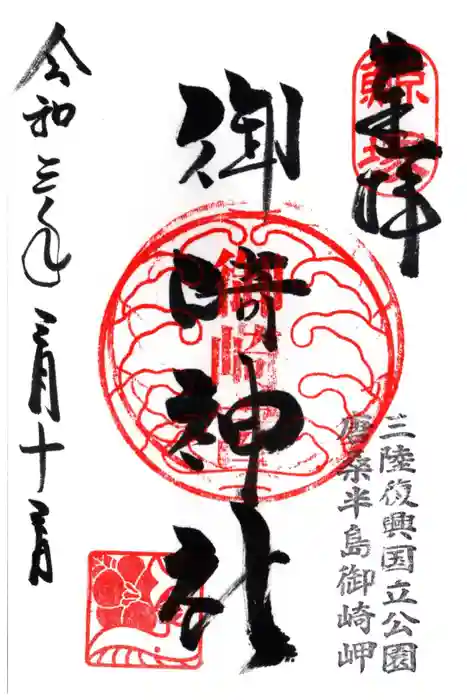 奉拝
鯨塚
三陸復興国立公園
唐桑半島御崎岬
御崎神社
御崎
令和三年三月十